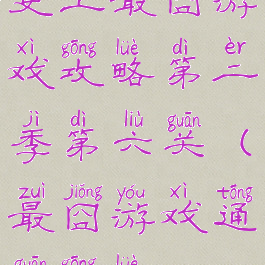 史上最囧游
xì gōng lüè dì èr
戏攻略第二
jì dì liù guān
季第六关（
zuì jiǒng yóu xì tōng
最囧游戏通
guān gōng lüè